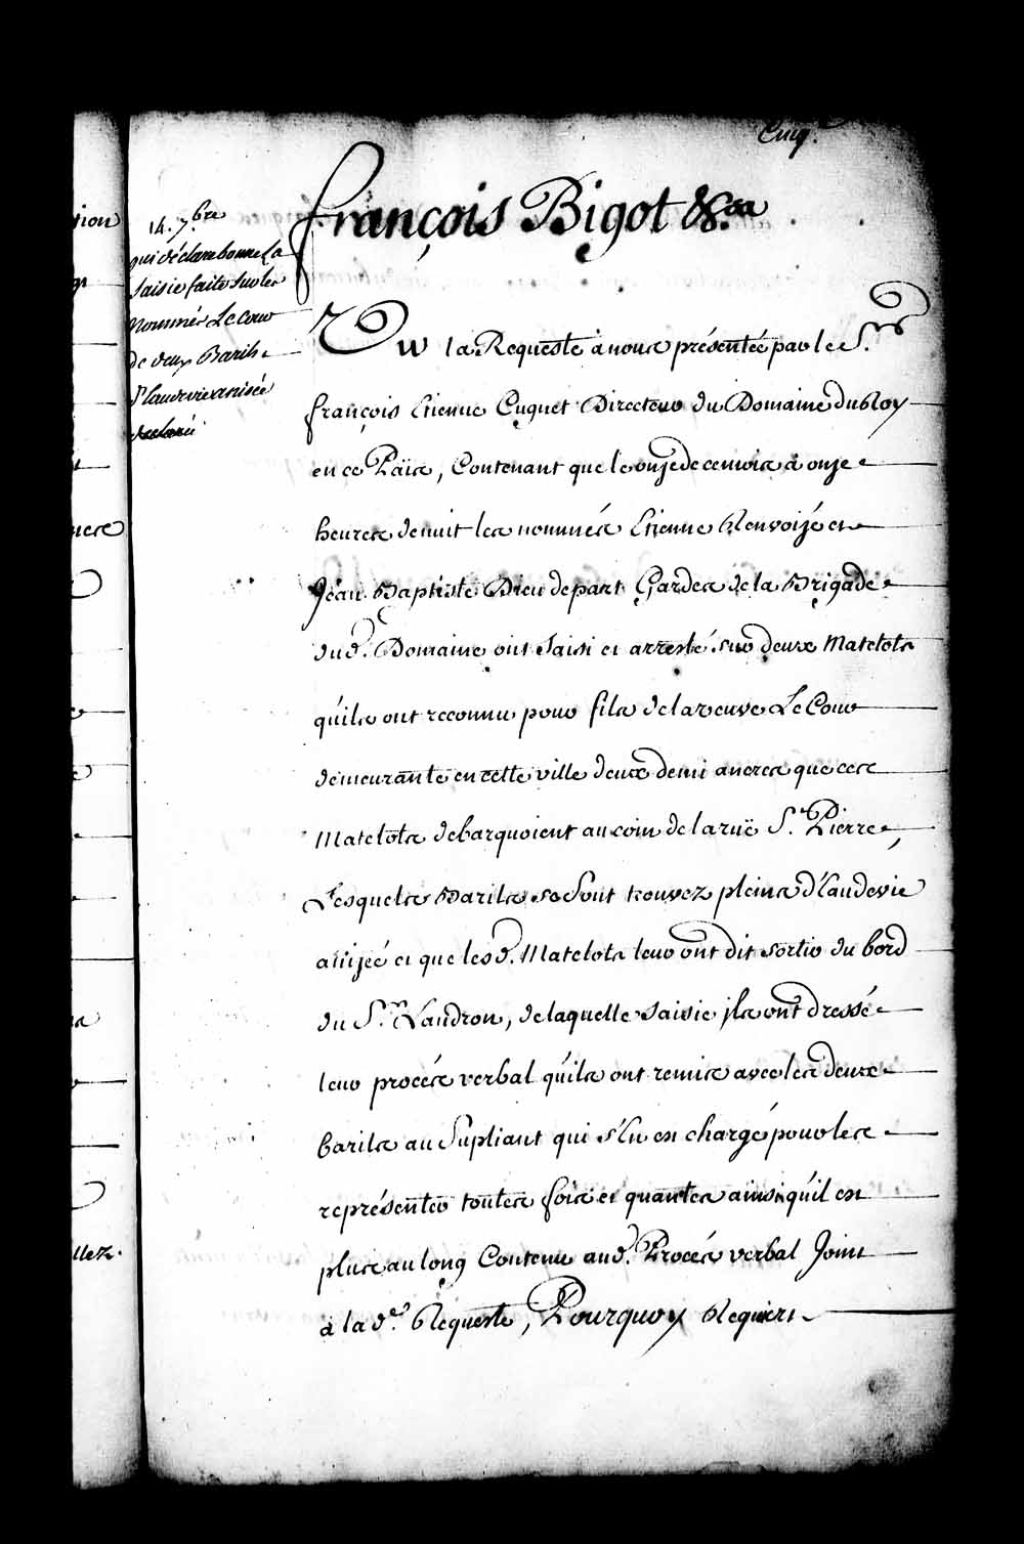 Cinq.
14. 7.bre
qui déclare bonne La
Saisie faite Sur les
Nommés Le Cour
de deux Barils
d'Eaudevie anisée
François Bigot &.aa
Vu la Requeste à nous présentée par le S.r
François Etienne Cuguet Directeur du Domaine du Roy
en ce Païs, Contenant que le onze de ce mois à onze
heures de nuit les nommés Etienne Renvoizé et
Jean Baptiste Dieu de part Gardes de la Brigade
dud. Domaine ont Saisi et arresté sur deux Matelots
qu'ils ont reconnu pour fils de la veuve Le Cour
demeurante en cette ville deux demi ancres que ces
Matelots debarquoient au coin de la ruë S.t Pierre,
Lesquels Barils se sont trouvez pleins d'Eaudevie
anizée et que lesd. Matelots leur ont dit sortir du bord
du S.r Landron, de laquelle saisie jls ont dressé
leur procés verbal qu'ils ont remis avec les deux
barils au Supliant qui s'En est chargé pour les
représenter toutes fois et quantes ainsi qu'il est
plus au long Contenu aud. Procés verbal Joint
à la d.e Requeste, Pourquoy Requiert
tion
nere
llez.